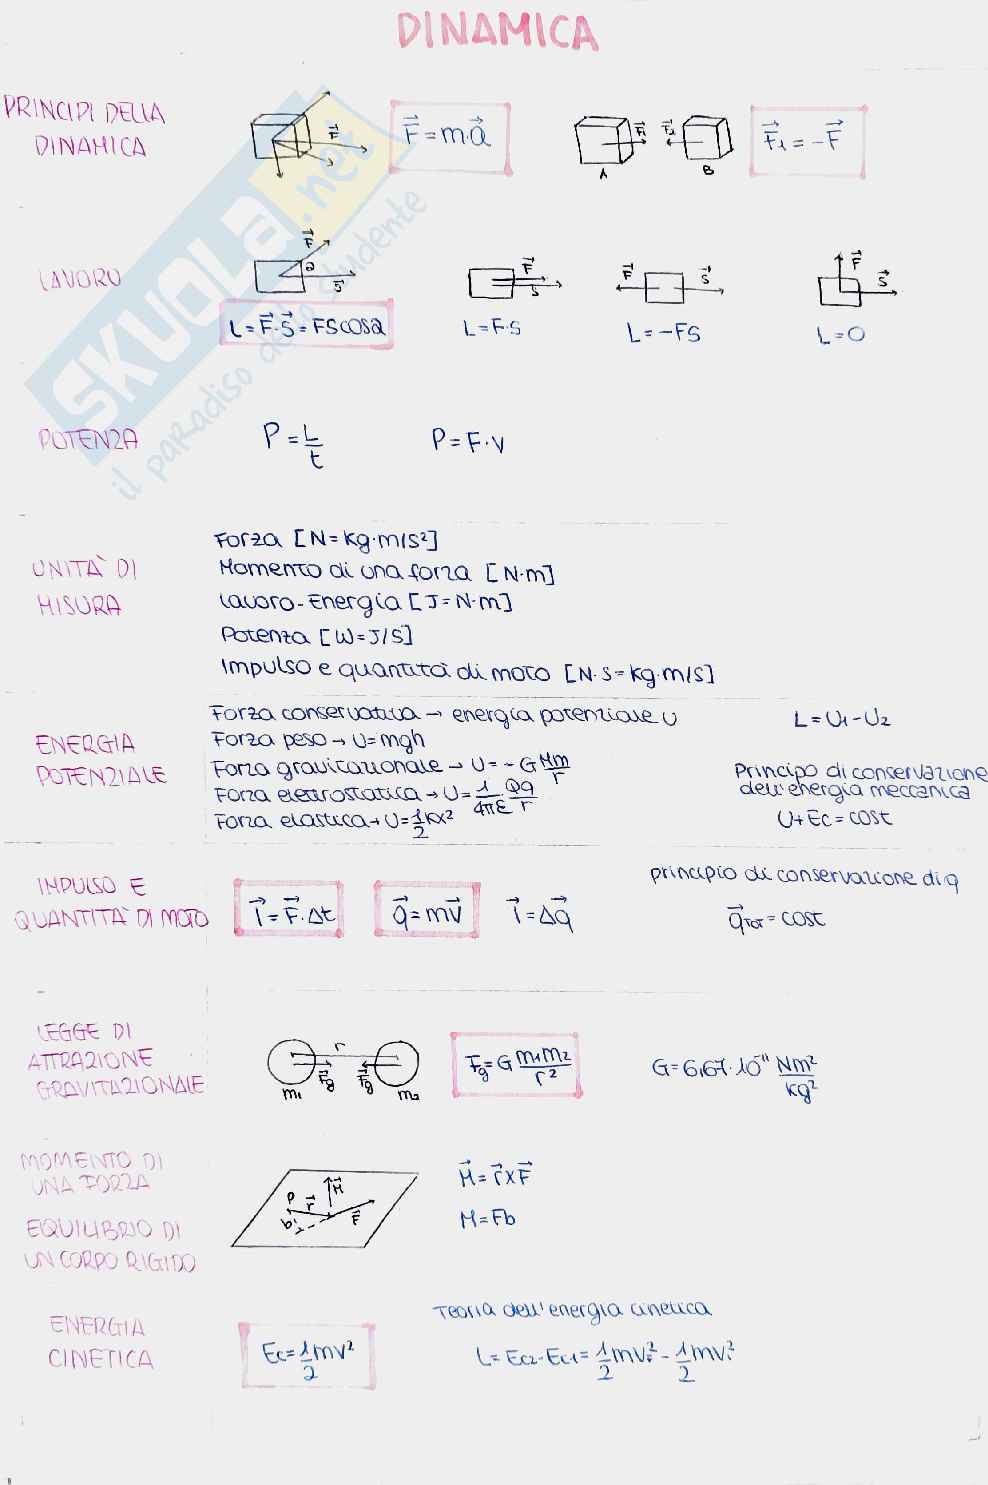 DINAMICA
PRINCIPI DELLA
DINAMICA
F
F = m·a
F₁
F₂
A
B
F₁ = -F
SKUOLA.net
il paradiso dello studente
LAVORO
F
a
S
L = F·S = FScosa
F
S
L = F·S
F
S
L = -FS
F
S
L = 0
POTENZA
P = L/t
P = F·V
UNITÀ DI
MISURA
Forza [N = kg·m/s²]
Momento di una forza [N·m]
Lavoro-Energia [J = N·m]
Potenza [W = J/S]
Impulso e quantità di moto [N·S = kg·m/s]
ENERGIA
POTENZIALE
Forza conservativa → energia potenziale U
Forza peso → U = mgh
Forza gravitazionale → U = -G Mm/r
Forza elettrostatica → U = 1/4πε Qq/r
Forza elastica → U = 1/2 Kx²
L = U₁ - U₂
Principo di conservazione
dell'energia meccanica
U + Ec = cost
IMPULSO E
QUANTITÀ DI MOTO
I = F·Δt
q = mv
I = Δq
principio di conservazione di q
qTOT = cost
LEGGE DI
ATTRAZIONE
GRAVITAZIONALE
r
Fg
Fg
m₁
m₂
Fg = G m₁m₂/r²
G = 6,67·10⁻¹¹ Nm²/kg²
MOMENTO DI
UNA FORZA
EQUILIBRIO DI
UN CORPO RIGIDO
P
r
M
b
F
M = r x F
M = Fb
ENERGIA
CINETICA
Ec = 1/2 mv²
Teoria dell'energia cinetica
L = Ec2 - Ec1 = 1/2 mv² - 1/2 mv²